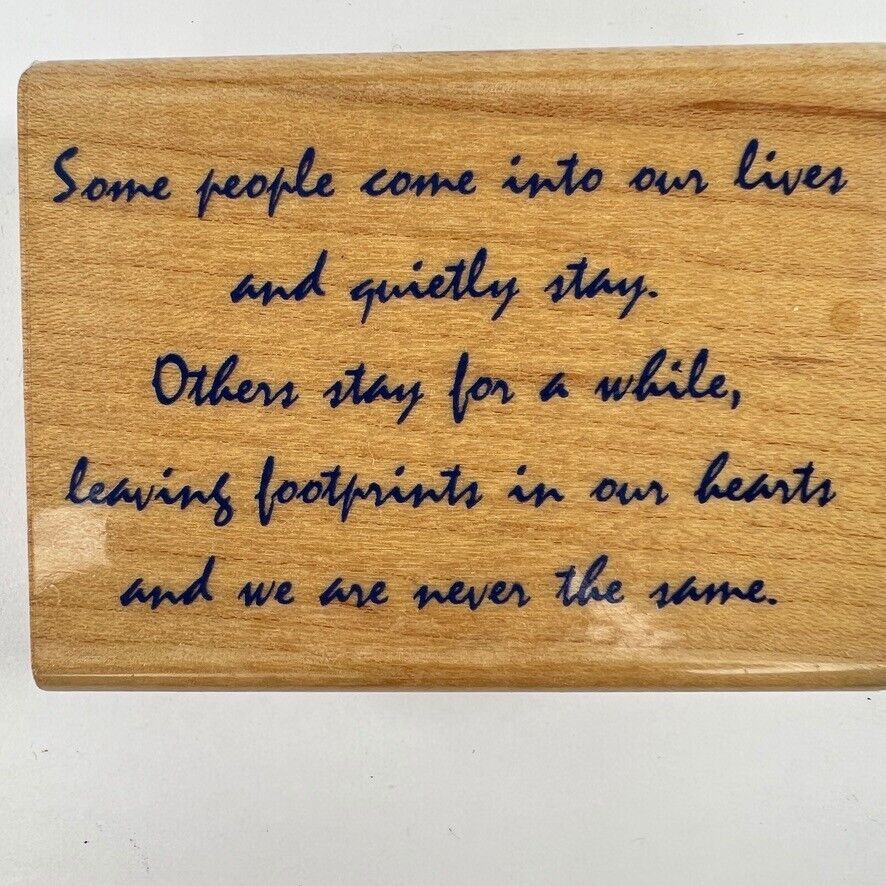 Some people come into our lives
and quietly stay.
Others stay for a while,
leaving footprints in our hearts
and we are never the same.